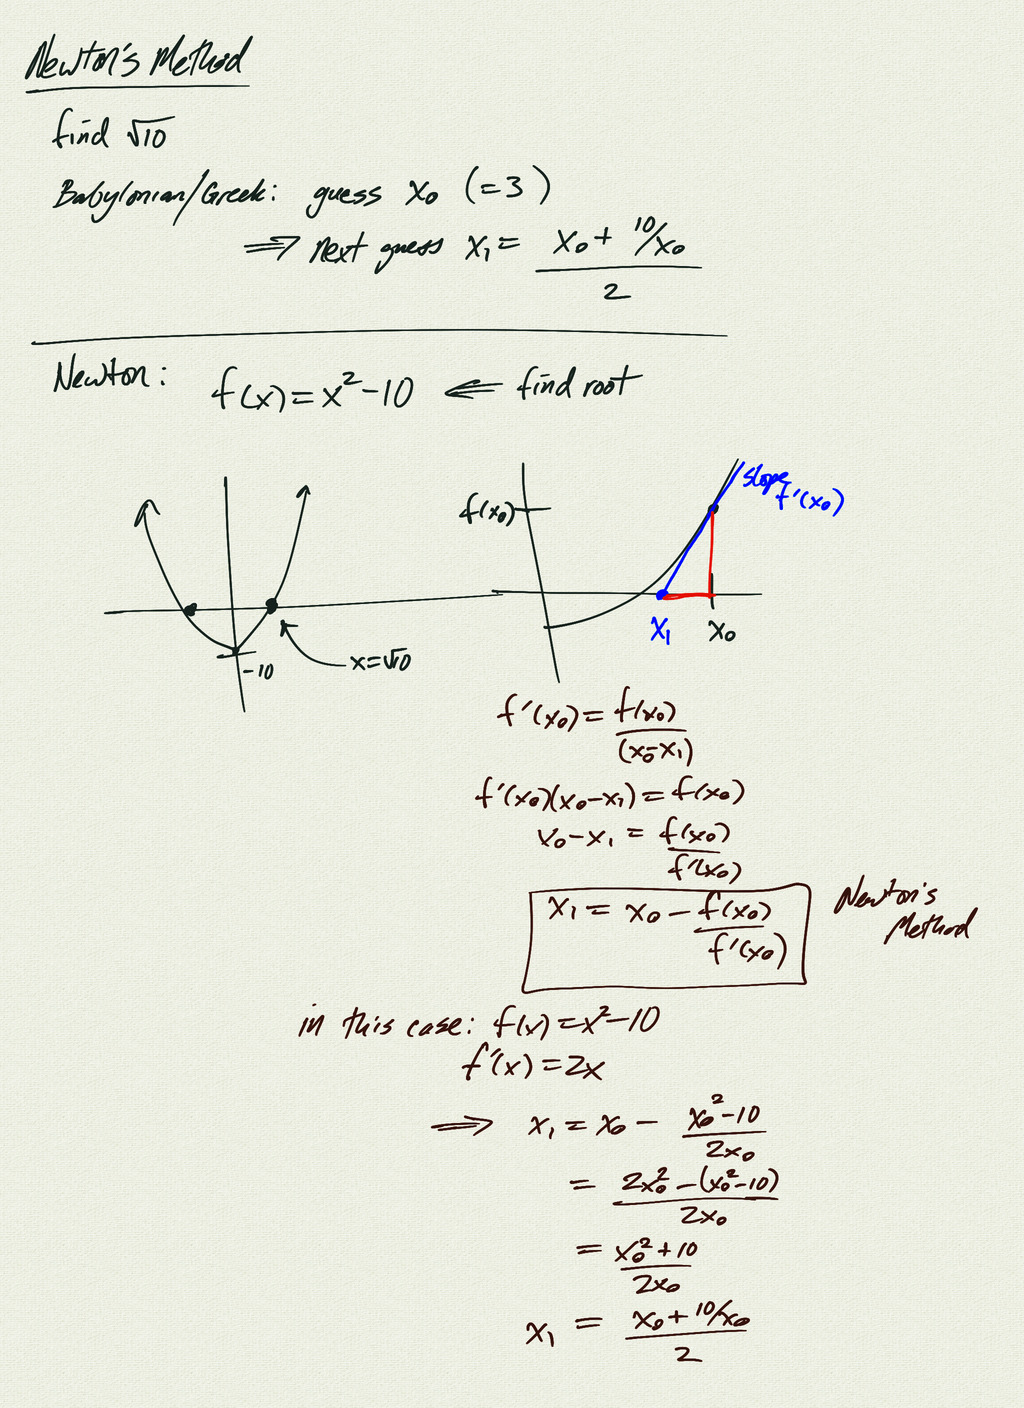 Newton's Method
find √10
Babylonian/Greek: guess x₀ (=3)
⟹ next guess x₁ = (x₀ + 10/x₀)/2
Newton: f(x) = x² - 10 ⟸ find root
-10
x=√10
f(x₀)
slope f'(x₀)
x₁ x₀
f'(x₀) = f(x₀)/(x₀-x₁)
f'(x₀)(x₀-x₁) = f(x₀)
x₀-x₁ = f(x₀)/f'(x₀)
x₁ = x₀ - f(x₀)/f'(x₀)
Newton's
Method
in this case: f(x) = x²-10
f'(x) = 2x
⟹ x₁ = x₀ - (x₀²-10)/2x₀
= (2x₀² - (x₀²-10))/2x₀
= (x₀²+10)/2x₀
x₁ = (x₀ + 10/x₀)/2